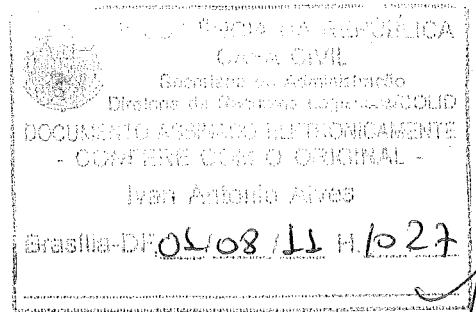 DA REPÚBLICA
CASA CIVIL
Secretaria de Administração
Diretoria de Recursos Logísticos/COLID
DOCUMENTO ASSINADO ELETRONICAMENTE
- CONFERE COM O ORIGINAL -
Ivan Antonio Alves
Brasília-DF 01/08/11 H. 1027